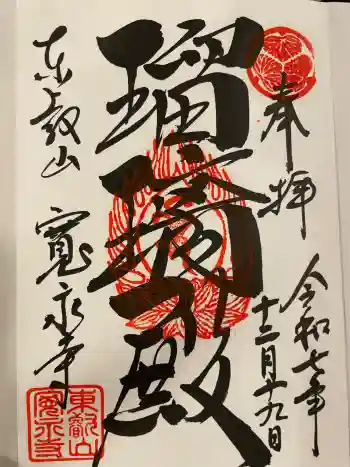 奉拝
令和七年
十二月廿九日
瑠璃殿
東叡山 寛永寺
東叡山
寛永寺